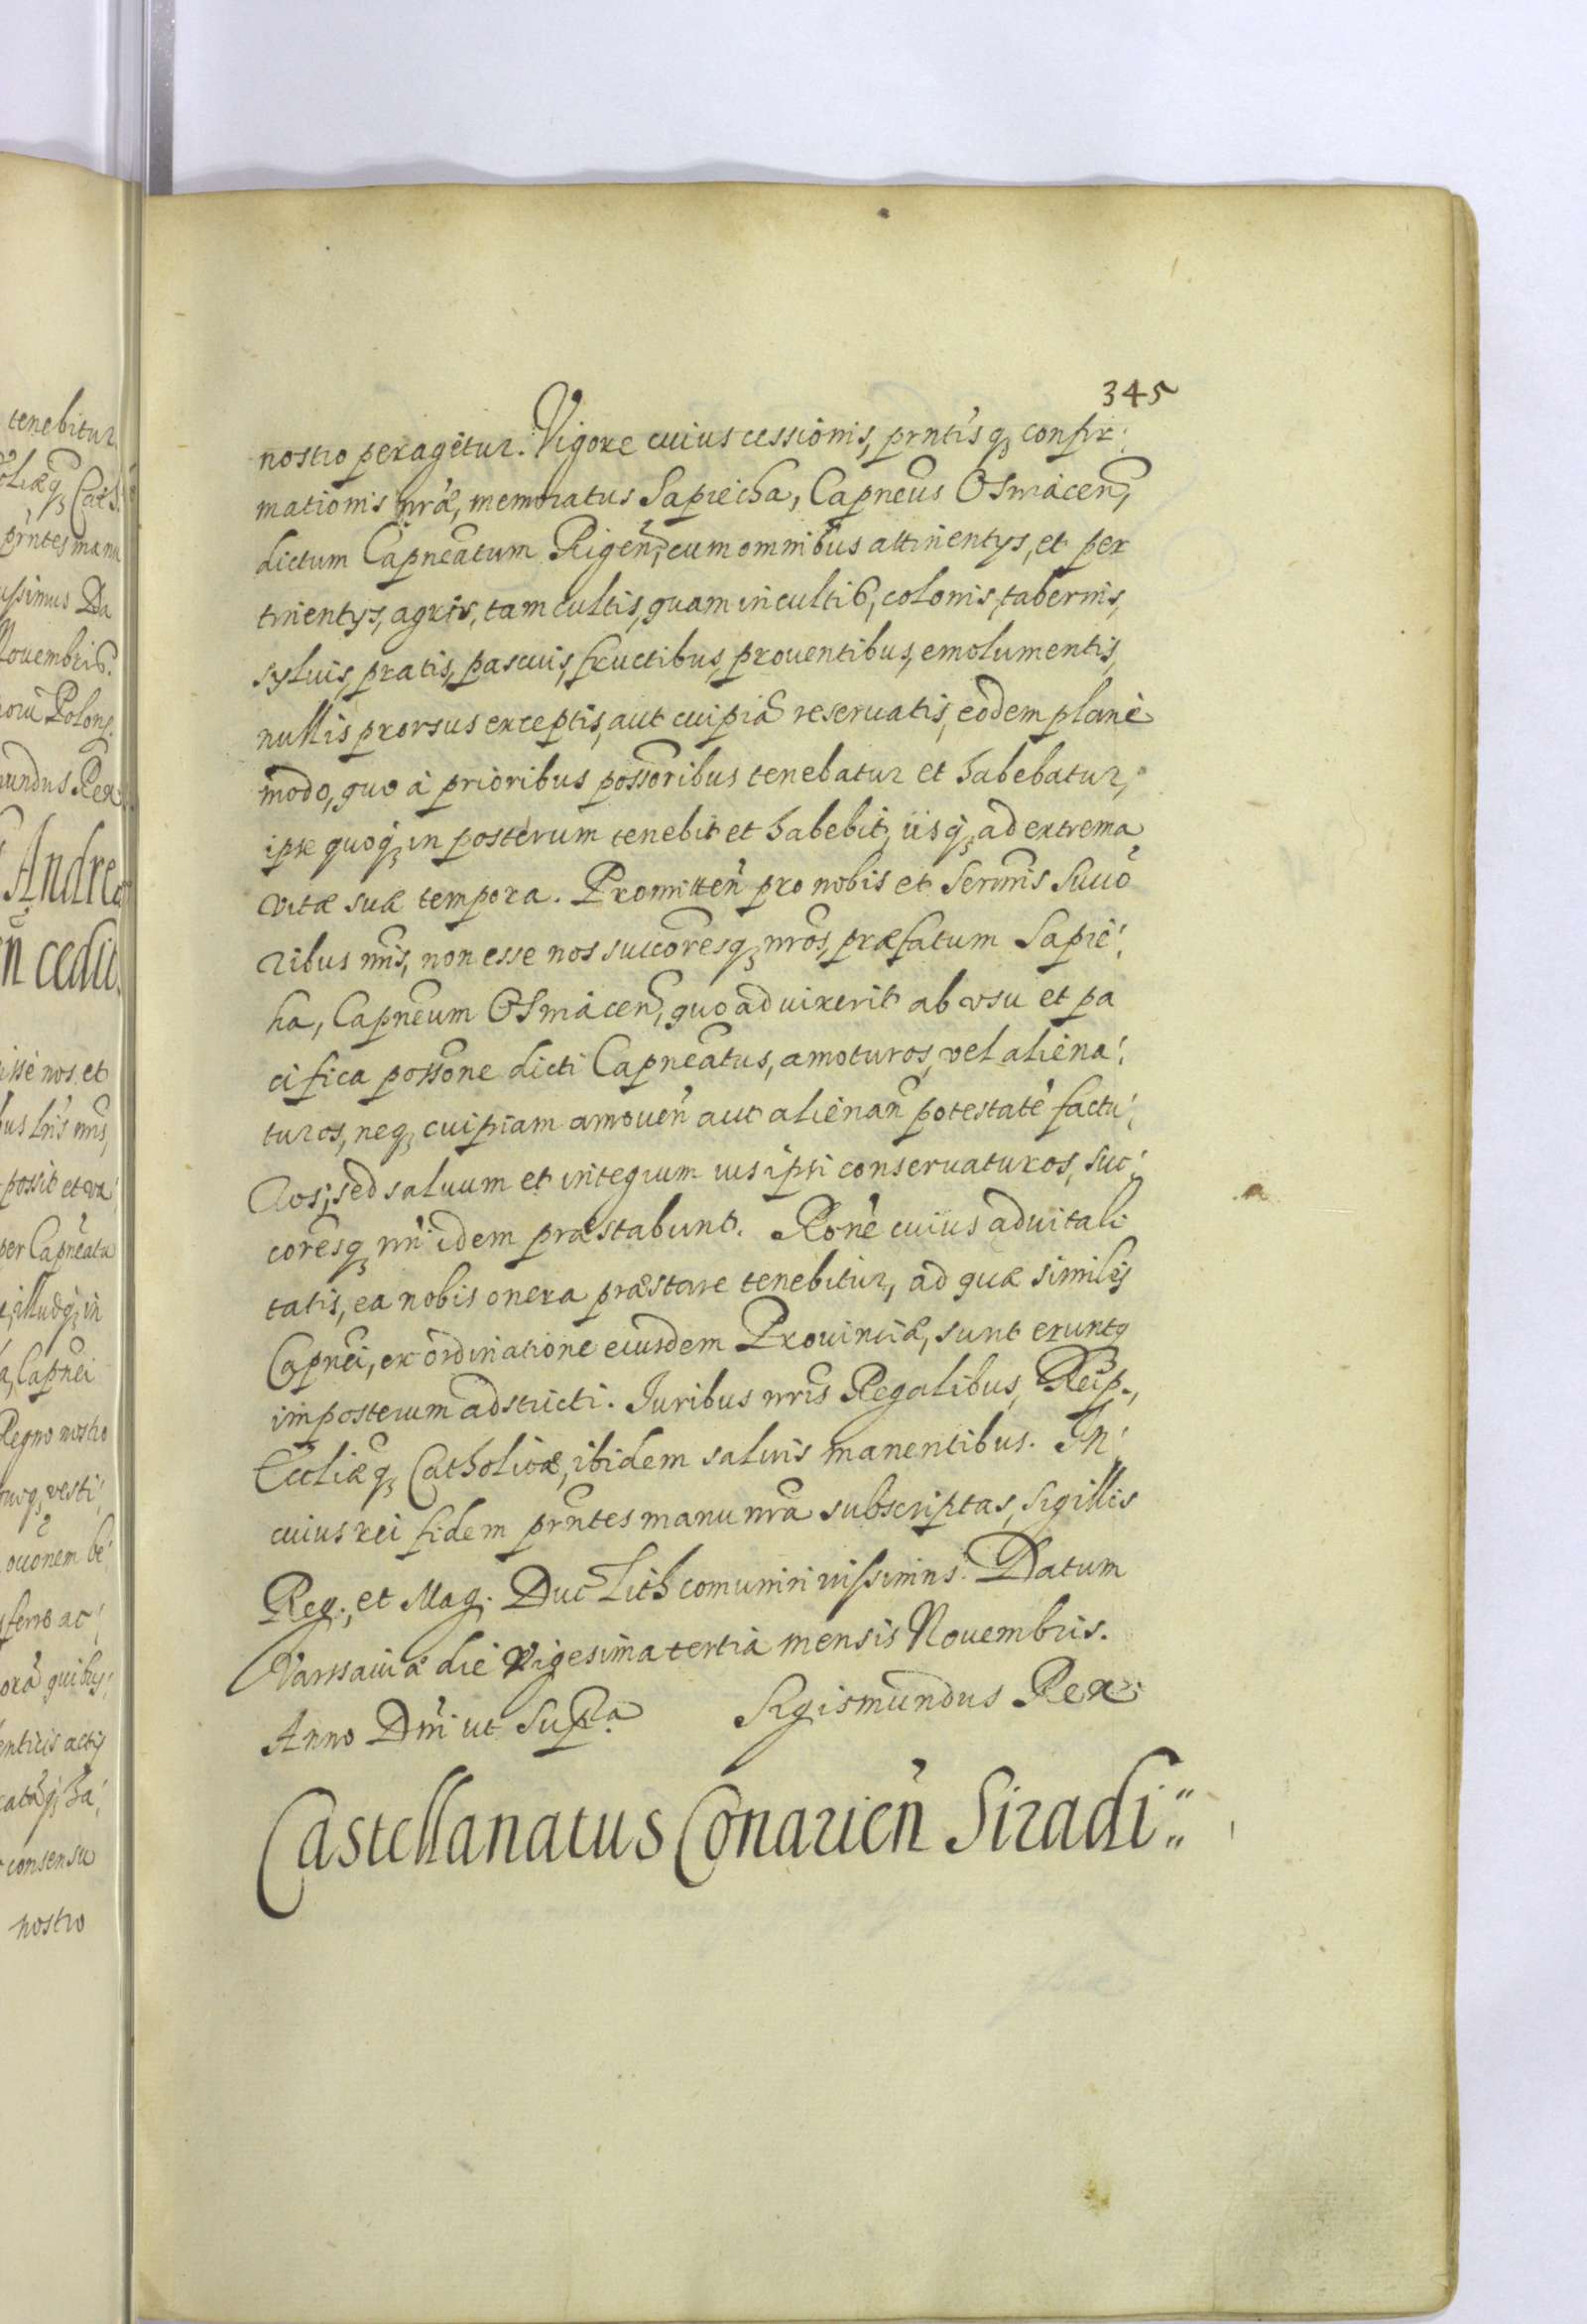 345
nostro peragetur. Vigore cuius cessionis, prntisq; confir:
mationis nræ, memoratus Sapieha, Capneus Osmiacen,
dictum Capneatum Rigen, cum omnibus attinentys, et per
tinentys, agris, tam cultis, quam incultis, colonis, tabernis,
syluis, pratis, pascuis, fructibus, prouentibus, emolumentis,
nullis prorsus exceptis, aut cuipiã reseruatis, eodem planè
modo, quo à prioribus possoribus tenebatur et habebatur,
ipse quoq; in posterum tenebit et habebit, iisq; ad extrema
vitæ suæ tempora. Promitten pro nobis et Sermis Succo
ribus nris, non esse nos succoresq; nros, præfatum Sapie:
ha, Capneum Osmiacen, quoad uixerit ab vsu et pa
cifica possone dicti Capneatus, amoturos, vel aliena:
turos, neq; cuipiam amouen aut alienan potestatẽ factu:
ros, sed saluum et integrum ius ipsi conseruaturos, suc:
coresq; nri idem præstabunt. Rone cuius aduitali
tatis, ea nobis onera præstare tenebitur, ad quæ similes
Capnei, ex ordinatione eiusdem Prouinciæ, sunt eruntq
imposterum adstricti. Iuribus nris Regalibus, Reip.,
Eccliæq; Catholicæ, ibidem saluis manentibus. In
cuius rei fidem prntes manu nra subscriptas, sigillis
Reg., et Mag. Duc Lith comuniri iussimus. Datum
Varssauiæ die vigesima tertia mensis Nouembris.
Anno Dni ut supra Sigismundus Rex
Castellanatus Conarien Siradi:
tenebitur
prntes manu
Nouembris.
Polon
mundus Rex
Andre
cedit
isse nos et
possit et va
per Capneatu
illudq; in
Capnei
Regno nostro
vesti
ouonem be
quibus
enticis actis
consensu
nostro